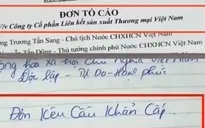 ĐƠN TỐ CÁO
V/v Công ty Cổ phần Liên kết sản xuất Thương mại Việt Nam
Trương Tấn Sang - Chủ tịch Nước CHXHCN Việt Nam
Nguyễn Tấn Dũng - Thủ tướng chính phủ Nước CHXHCN
Cộng hòa Xã hội Chủ Nghĩa Việt Nam
Độc lập - Tự Do - Hạnh phúc
Đơn Kêu Cứu Khẩn Cấp